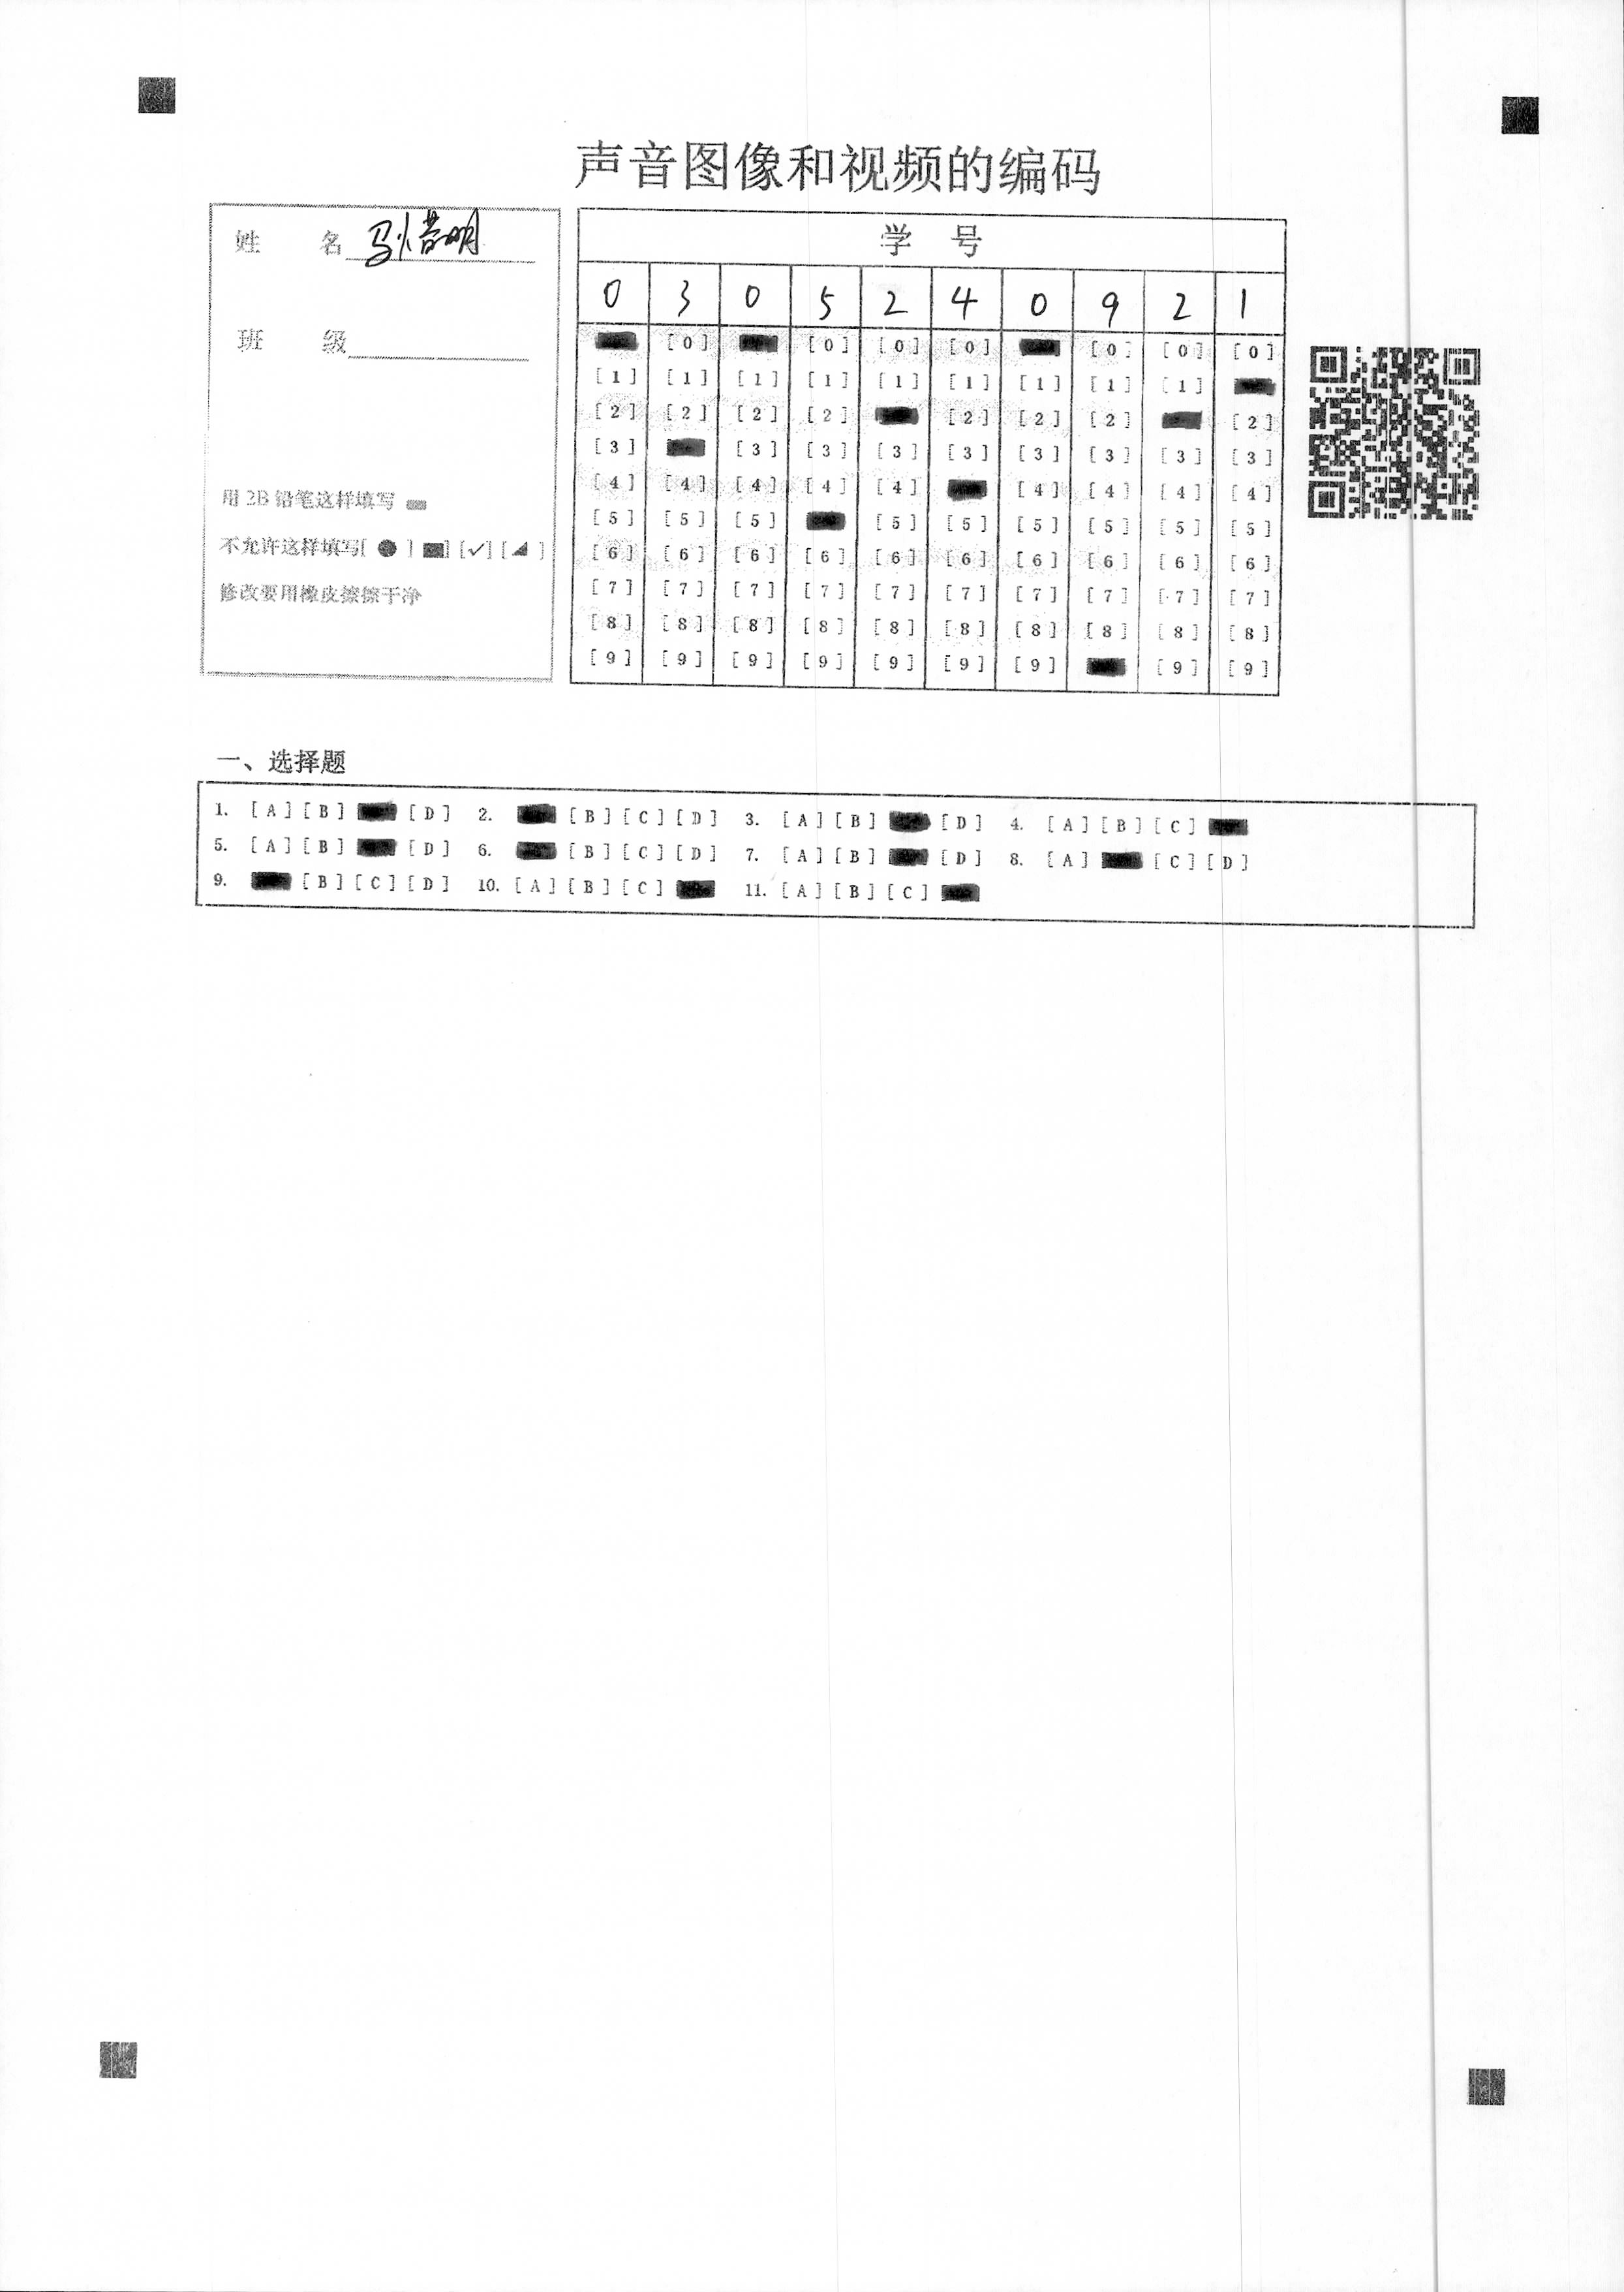 声音图像和视频的编码
姓 名
班 级
用 2B 铅笔这样填写
不允许这样填写[ ● ] [■] [✓] [◢ ]
修改要用橡皮擦擦干净
学 号
0 3 0 5 2 4 0 9 2 1
[0] [0] [0] [0] [0] [0] [0]
[1] [1] [1] [1] [1] [1] [1] [1] [1]
[2] [2] [2] [2] [2] [2] [2] [2]
[3] [3] [3] [3] [3] [3] [3] [3] [3]
[4] [4] [4] [4] [4] [4] [4] [4] [4]
[5] [5] [5] [5] [5] [5] [5] [5] [5]
[6] [6] [6] [6] [6] [6] [6] [6] [6] [6]
[7] [7] [7] [7] [7] [7] [7] [7] [7] [7]
[8] [8] [8] [8] [8] [8] [8] [8] [8] [8]
[9] [9] [9] [9] [9] [9] [9] [9] [9]
一、选择题
1. [A] [B] [D] 2. [B] [C] [D] 3. [A] [B] [D] 4. [A] [B] [C]
5. [A] [B] [D] 6. [B] [C] [D] 7. [A] [B] [D] 8. [A] [C] [D]
9. [B] [C] [D] 10. [A] [B] [C] 11. [A] [B] [C]